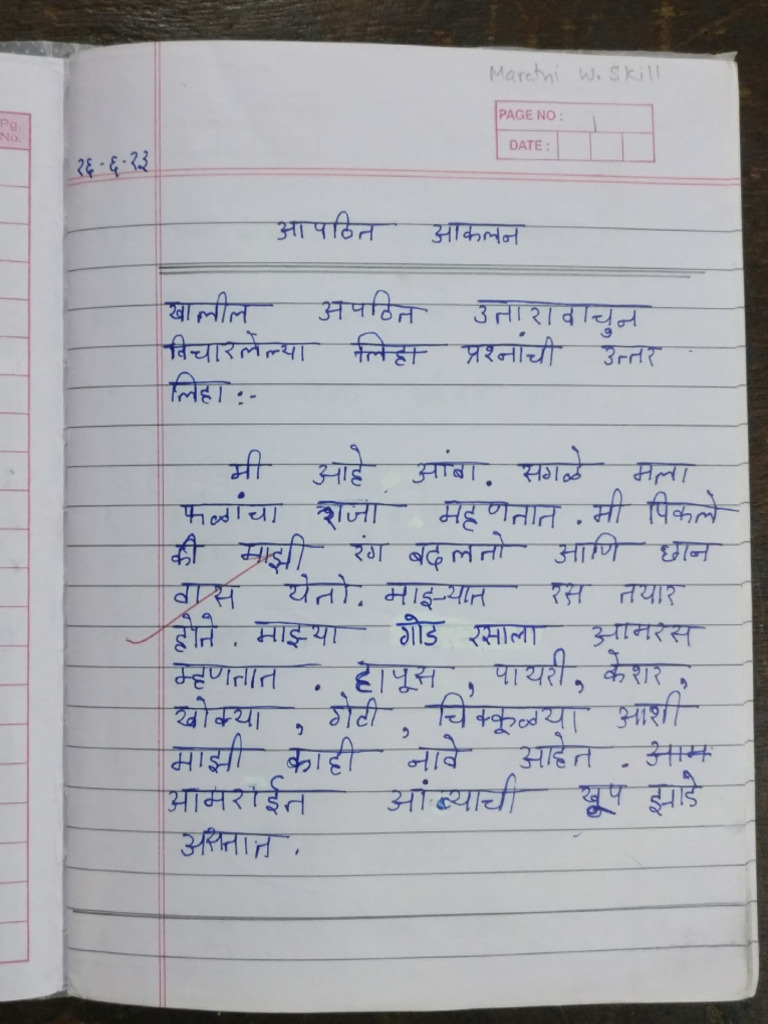 Pg.
No.
Marathi W. Skill
PAGE NO : 1
DATE :
२६-६-२३
आपठित आकलन
खालील अपठित उतारावाचुन
विचारलेल्या लिहा प्रश्नांची उत्तर
लिहा :-
मी आहे आंबा. सगळे मला
फळांचा राजा म्हणतात. मी पिकले
की माझी रंग बदलतो आणि छान
वास येतो. माझ्यात रस तयार
होते. माझ्या गोड रसाला आमरस
म्हणतात. हापूस, पायरी, केशर,
खोक्या, गोटी, चिक्कूळ्या आशी
माझी काही नावे आहेत. आम
आमराईत आंब्याची खूप झाडे
असतात.